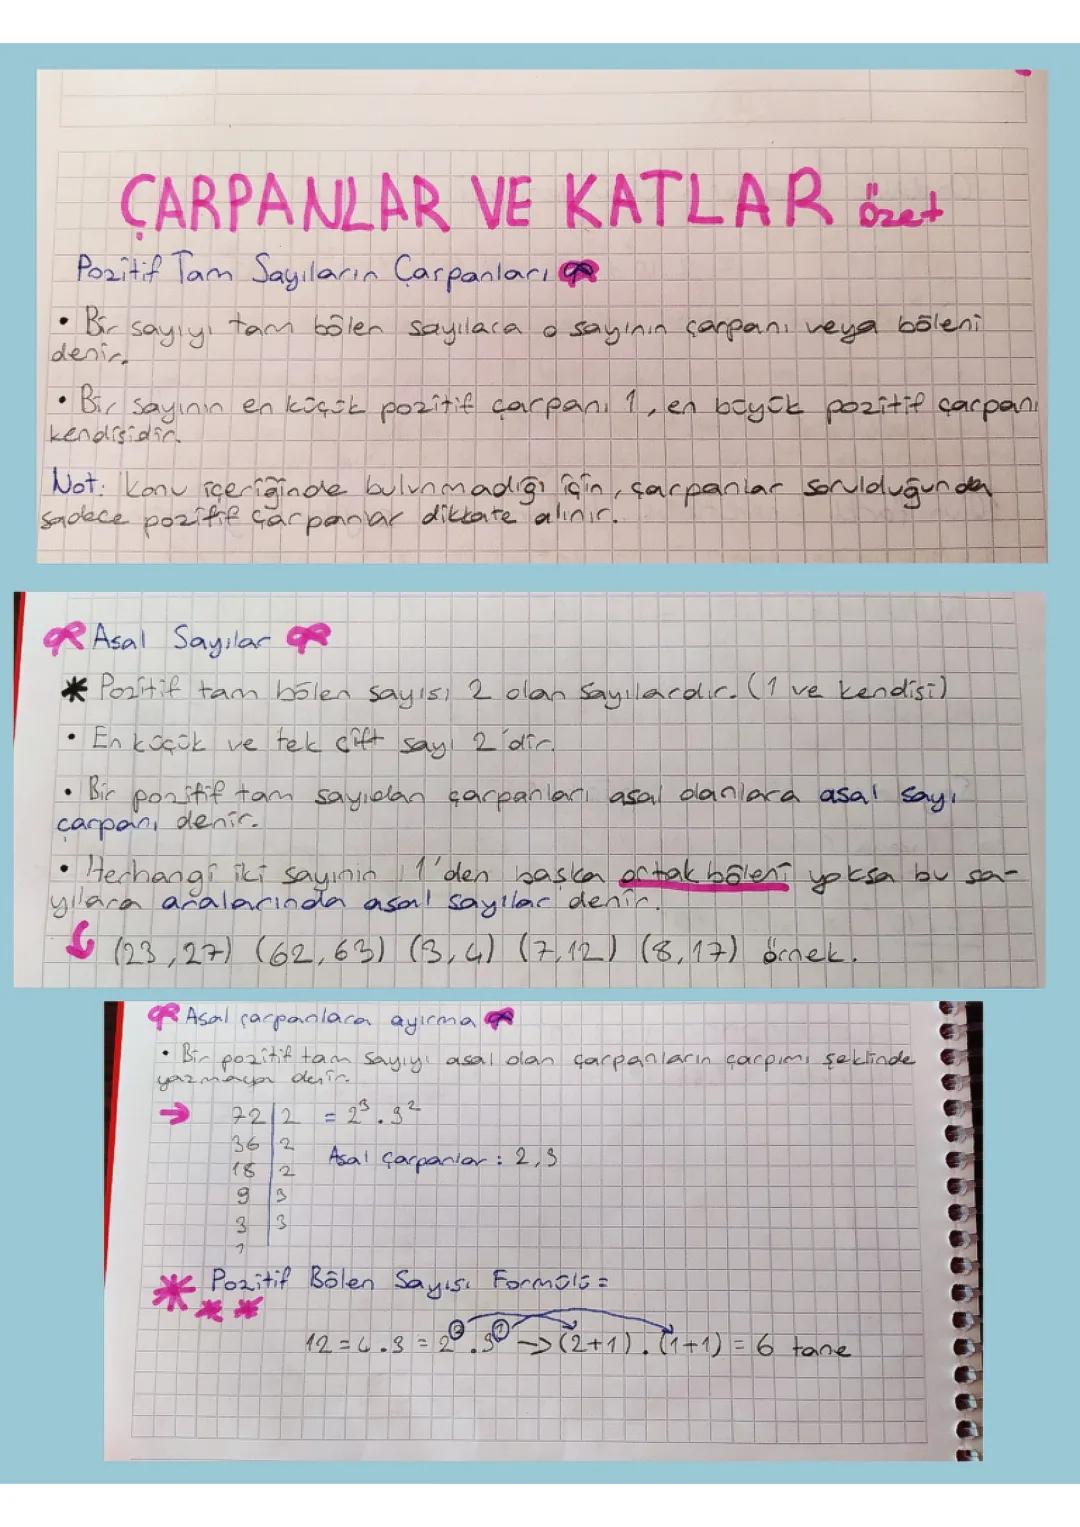 ÇARPANLAR VE KATLAR özet
Pozitif Tam Sayıların Çarpanları
• Bir sayıyı tam bölen sayılara o sayının çarpanı veya böleni
denir.
• Bir sayının en küçük pozitif çarpanı 1, en büyük pozitif çarpanı
kendisidir.
Not: Konu içeriğinde bulunmadığı için, çarpanlar sorulduğunda
sadece pozitif çarpanlar dikkate alınır.
Asal Sayılar
* Pozitif tam bölen sayısı 2 olan sayılardır. (1 ve kendisi)
• En küçük ve tek çift sayı 2'dir.
• Bir pozitif tam sayıdan çarpanları asal olanlara asal sayı
çarpanı denir.
• Herhangi iki sayının 1'den başka ortak böleni yoksa bu sa-
yılara aralarında asal sayılar denir.
(23,27) (62,63) (3,4) (7,12) (8,17) örnek.
Asal çarpanlara ayırma
• Bir pozitif tam sayıyı asal olan çarpanların çarpımı şeklinde
yazmaya denir.
→ 72 | 2 = 2³ . 3²
36 | 2
18 | 2 Asal Çarpanlar : 2,3
9 | 3
3 | 3
1
* Pozitif Bölen Sayısı Formülü =
* *
12 = 4 . 3 = 2² . 3¹ → (2+1) . (1+1) = 6 tane